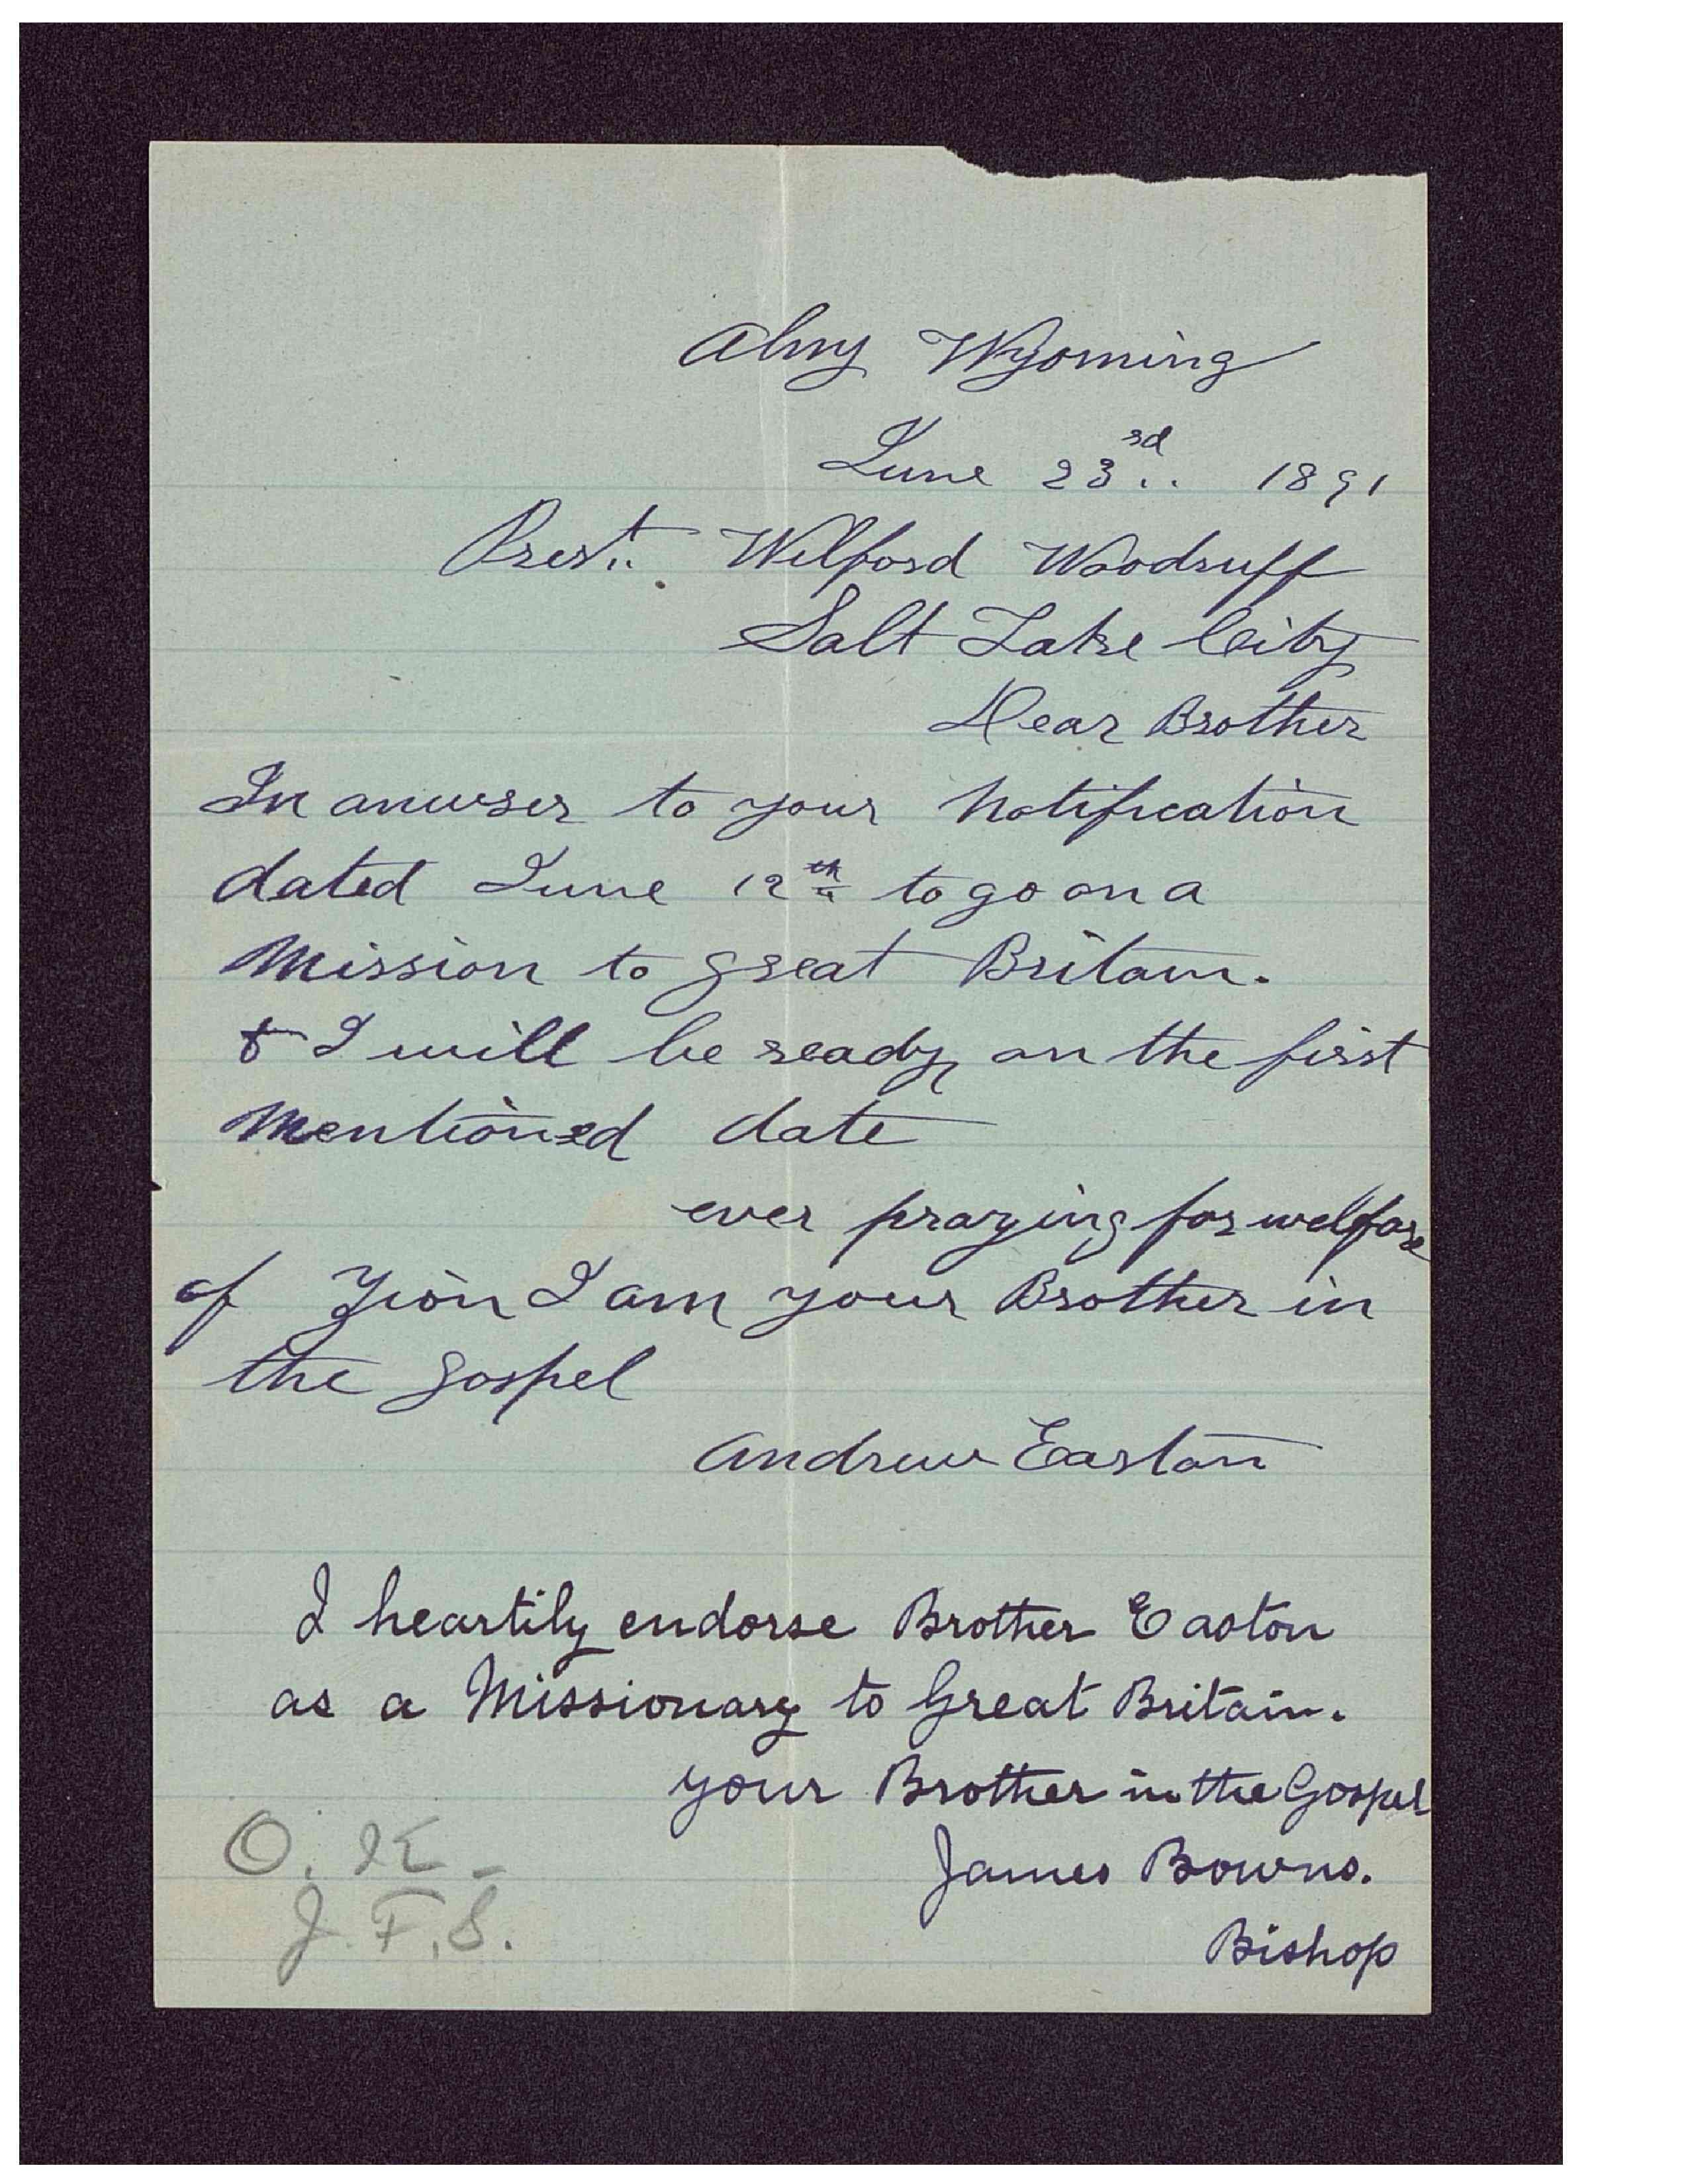 Almy Wyoming
June 23rd.. 1891
Prest.. Wilford Woodruff
Salt Lake City
Dear Brother
In anuwser to your Notification
dated June 12th to go on a
Mission to great Britain.
& I will be ready on the first
Mentioned date
ever praying for welfare
of Zion I am your Brother in
the gospel
Andrew Easton
I heartily endorse Brother Easton
as a Missionary to Great Britain.
your Brother in the Gospel
James Bowns.
Bishop
O. K.
J. F. S.